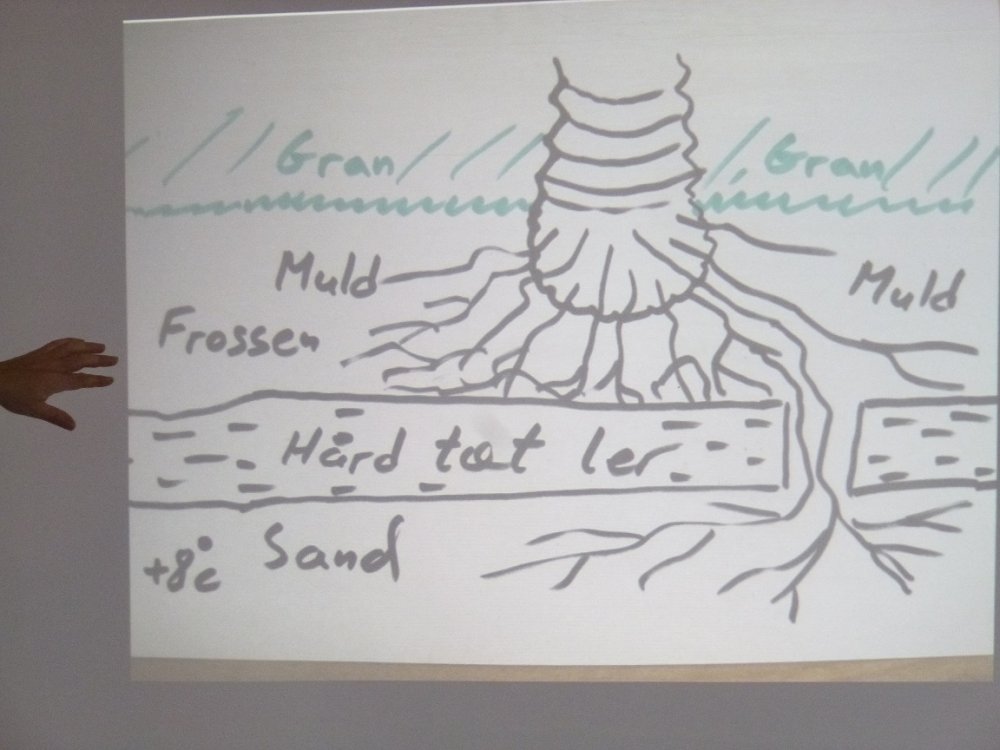 Gran Gran
Muld Muld
Frossen
Hård tæt ler
+8°c Sand